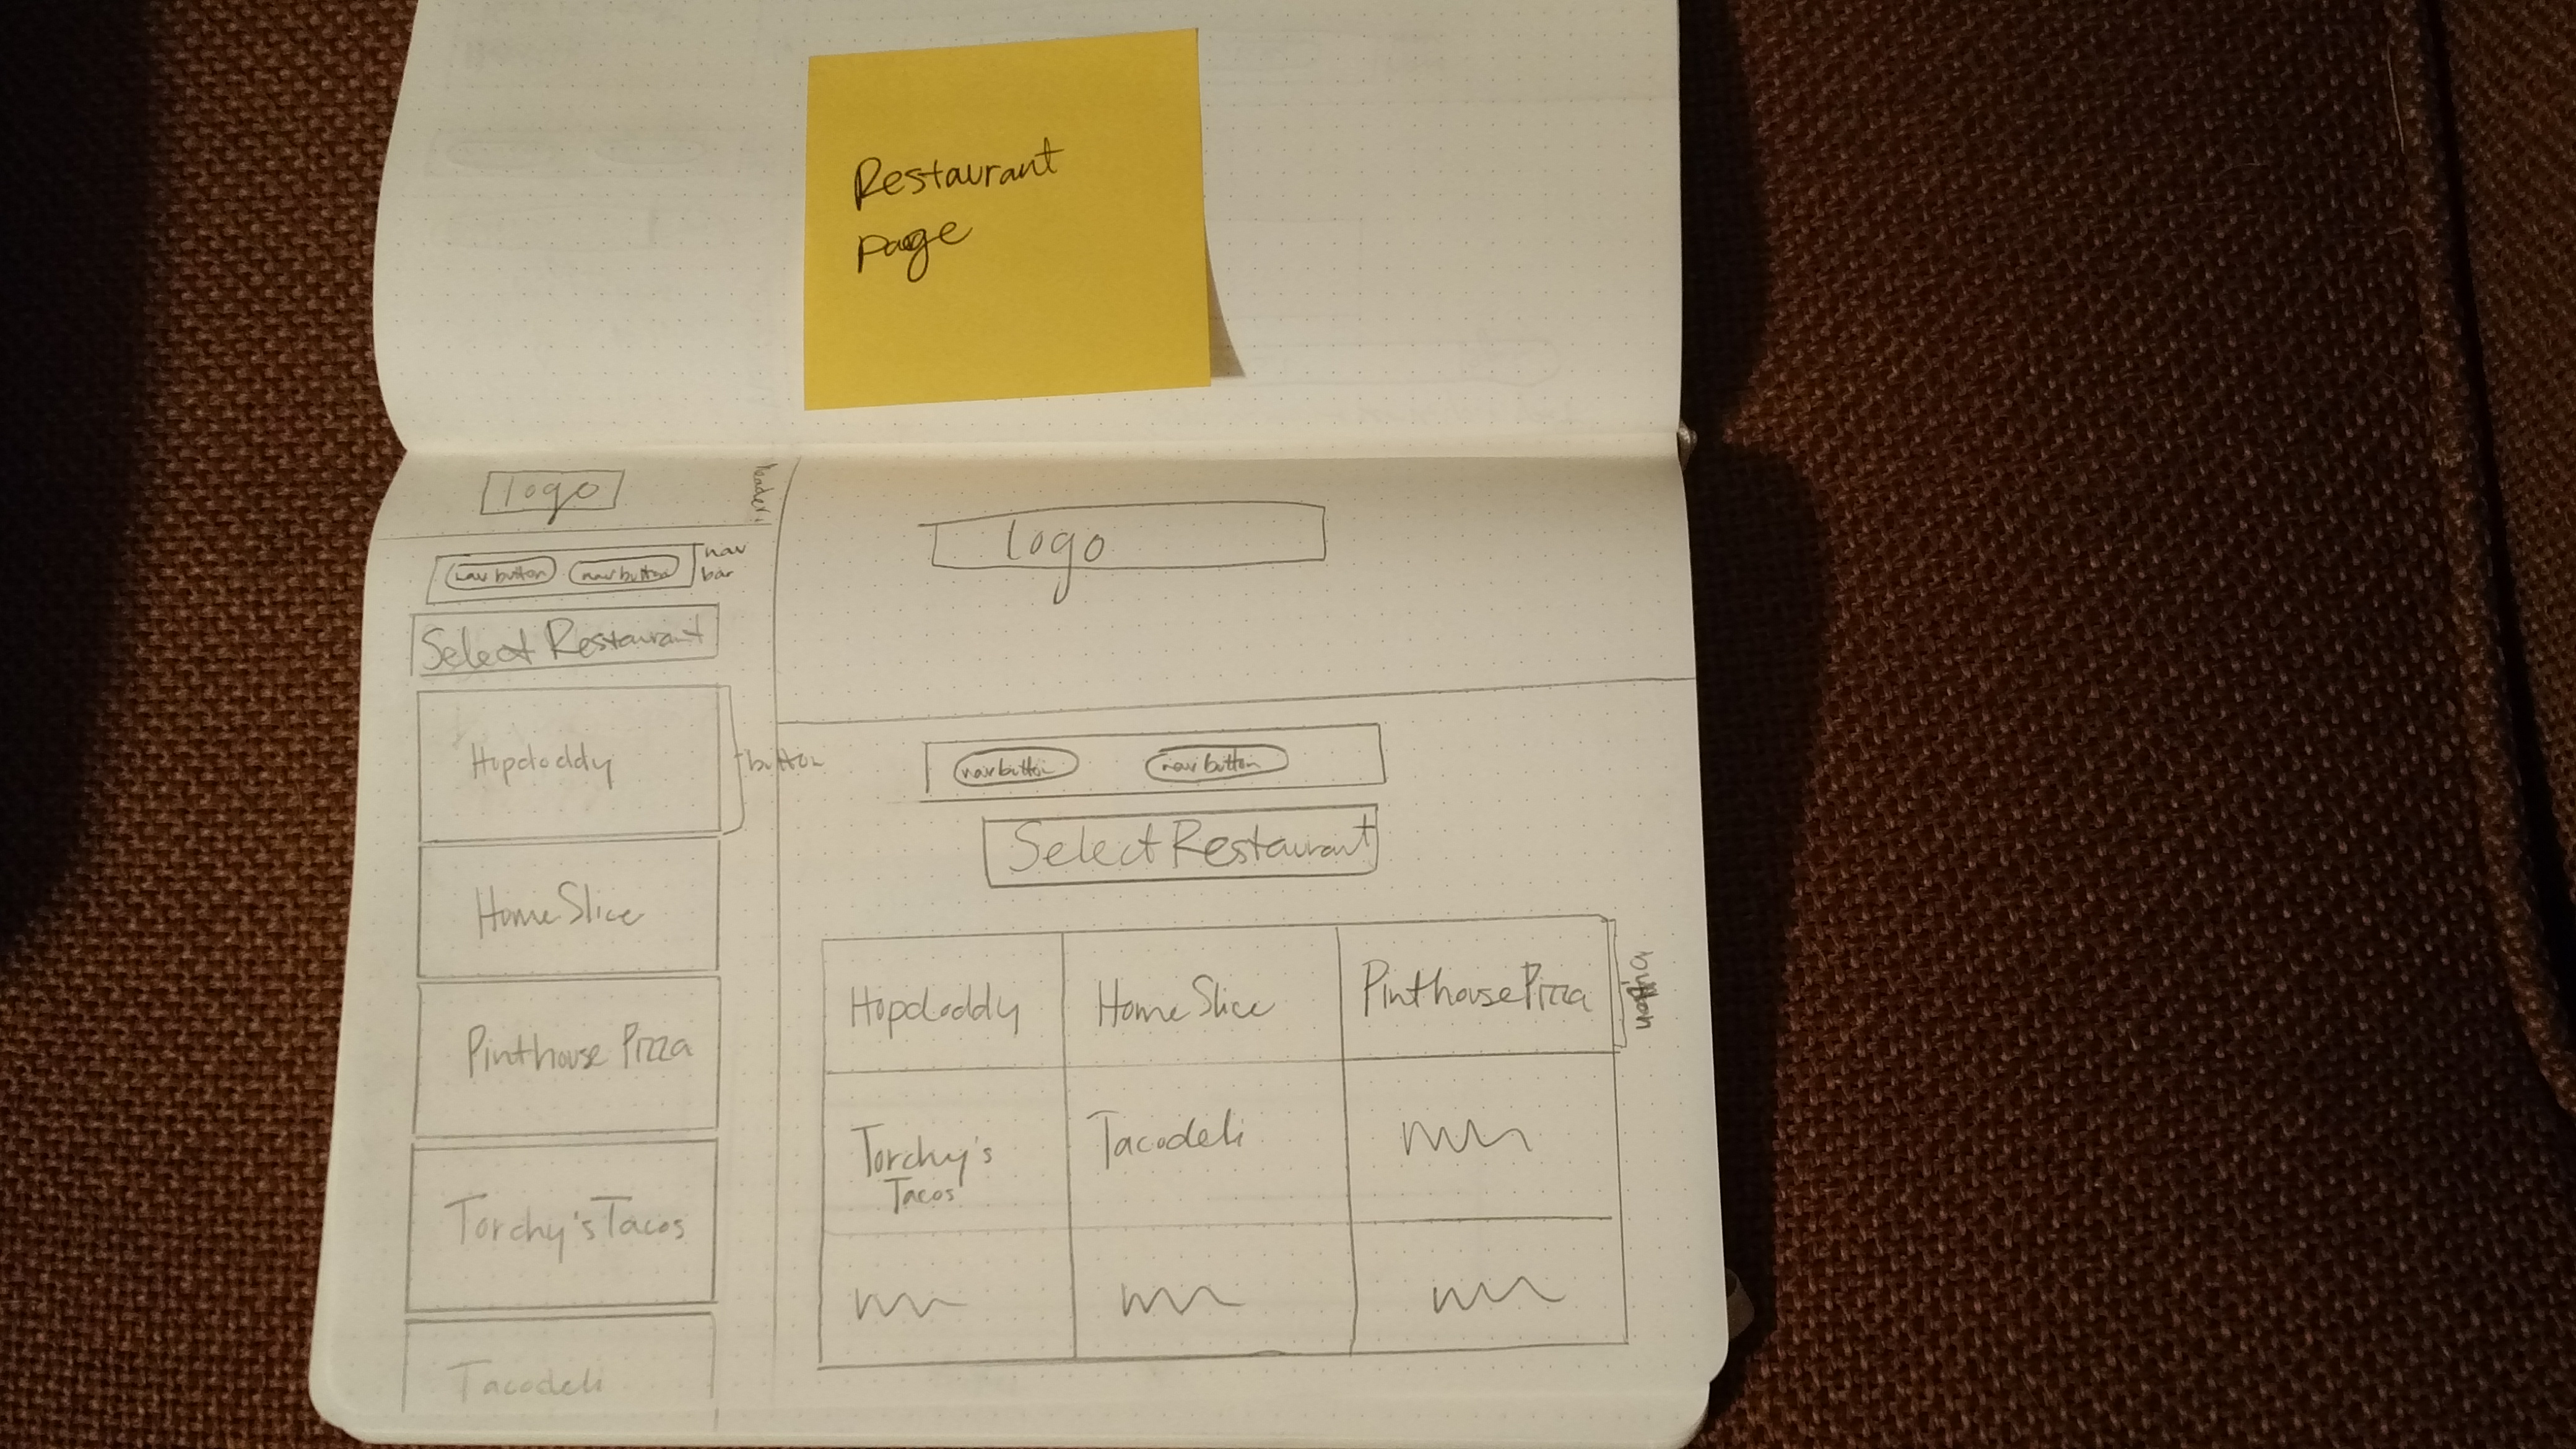 Restaurant
page
logo
header
nav button nav button
nav
bar
Select Restaurant
Hopdoddy
button
Home Slice
Pinthouse Pizza
Torchy's Tacos
Tacodeli
logo
nav button nav button
Select Restaurant
Hopdoddy Home Slice Pinthouse Pizza
button
Torchy's
Tacos
Tacodeli